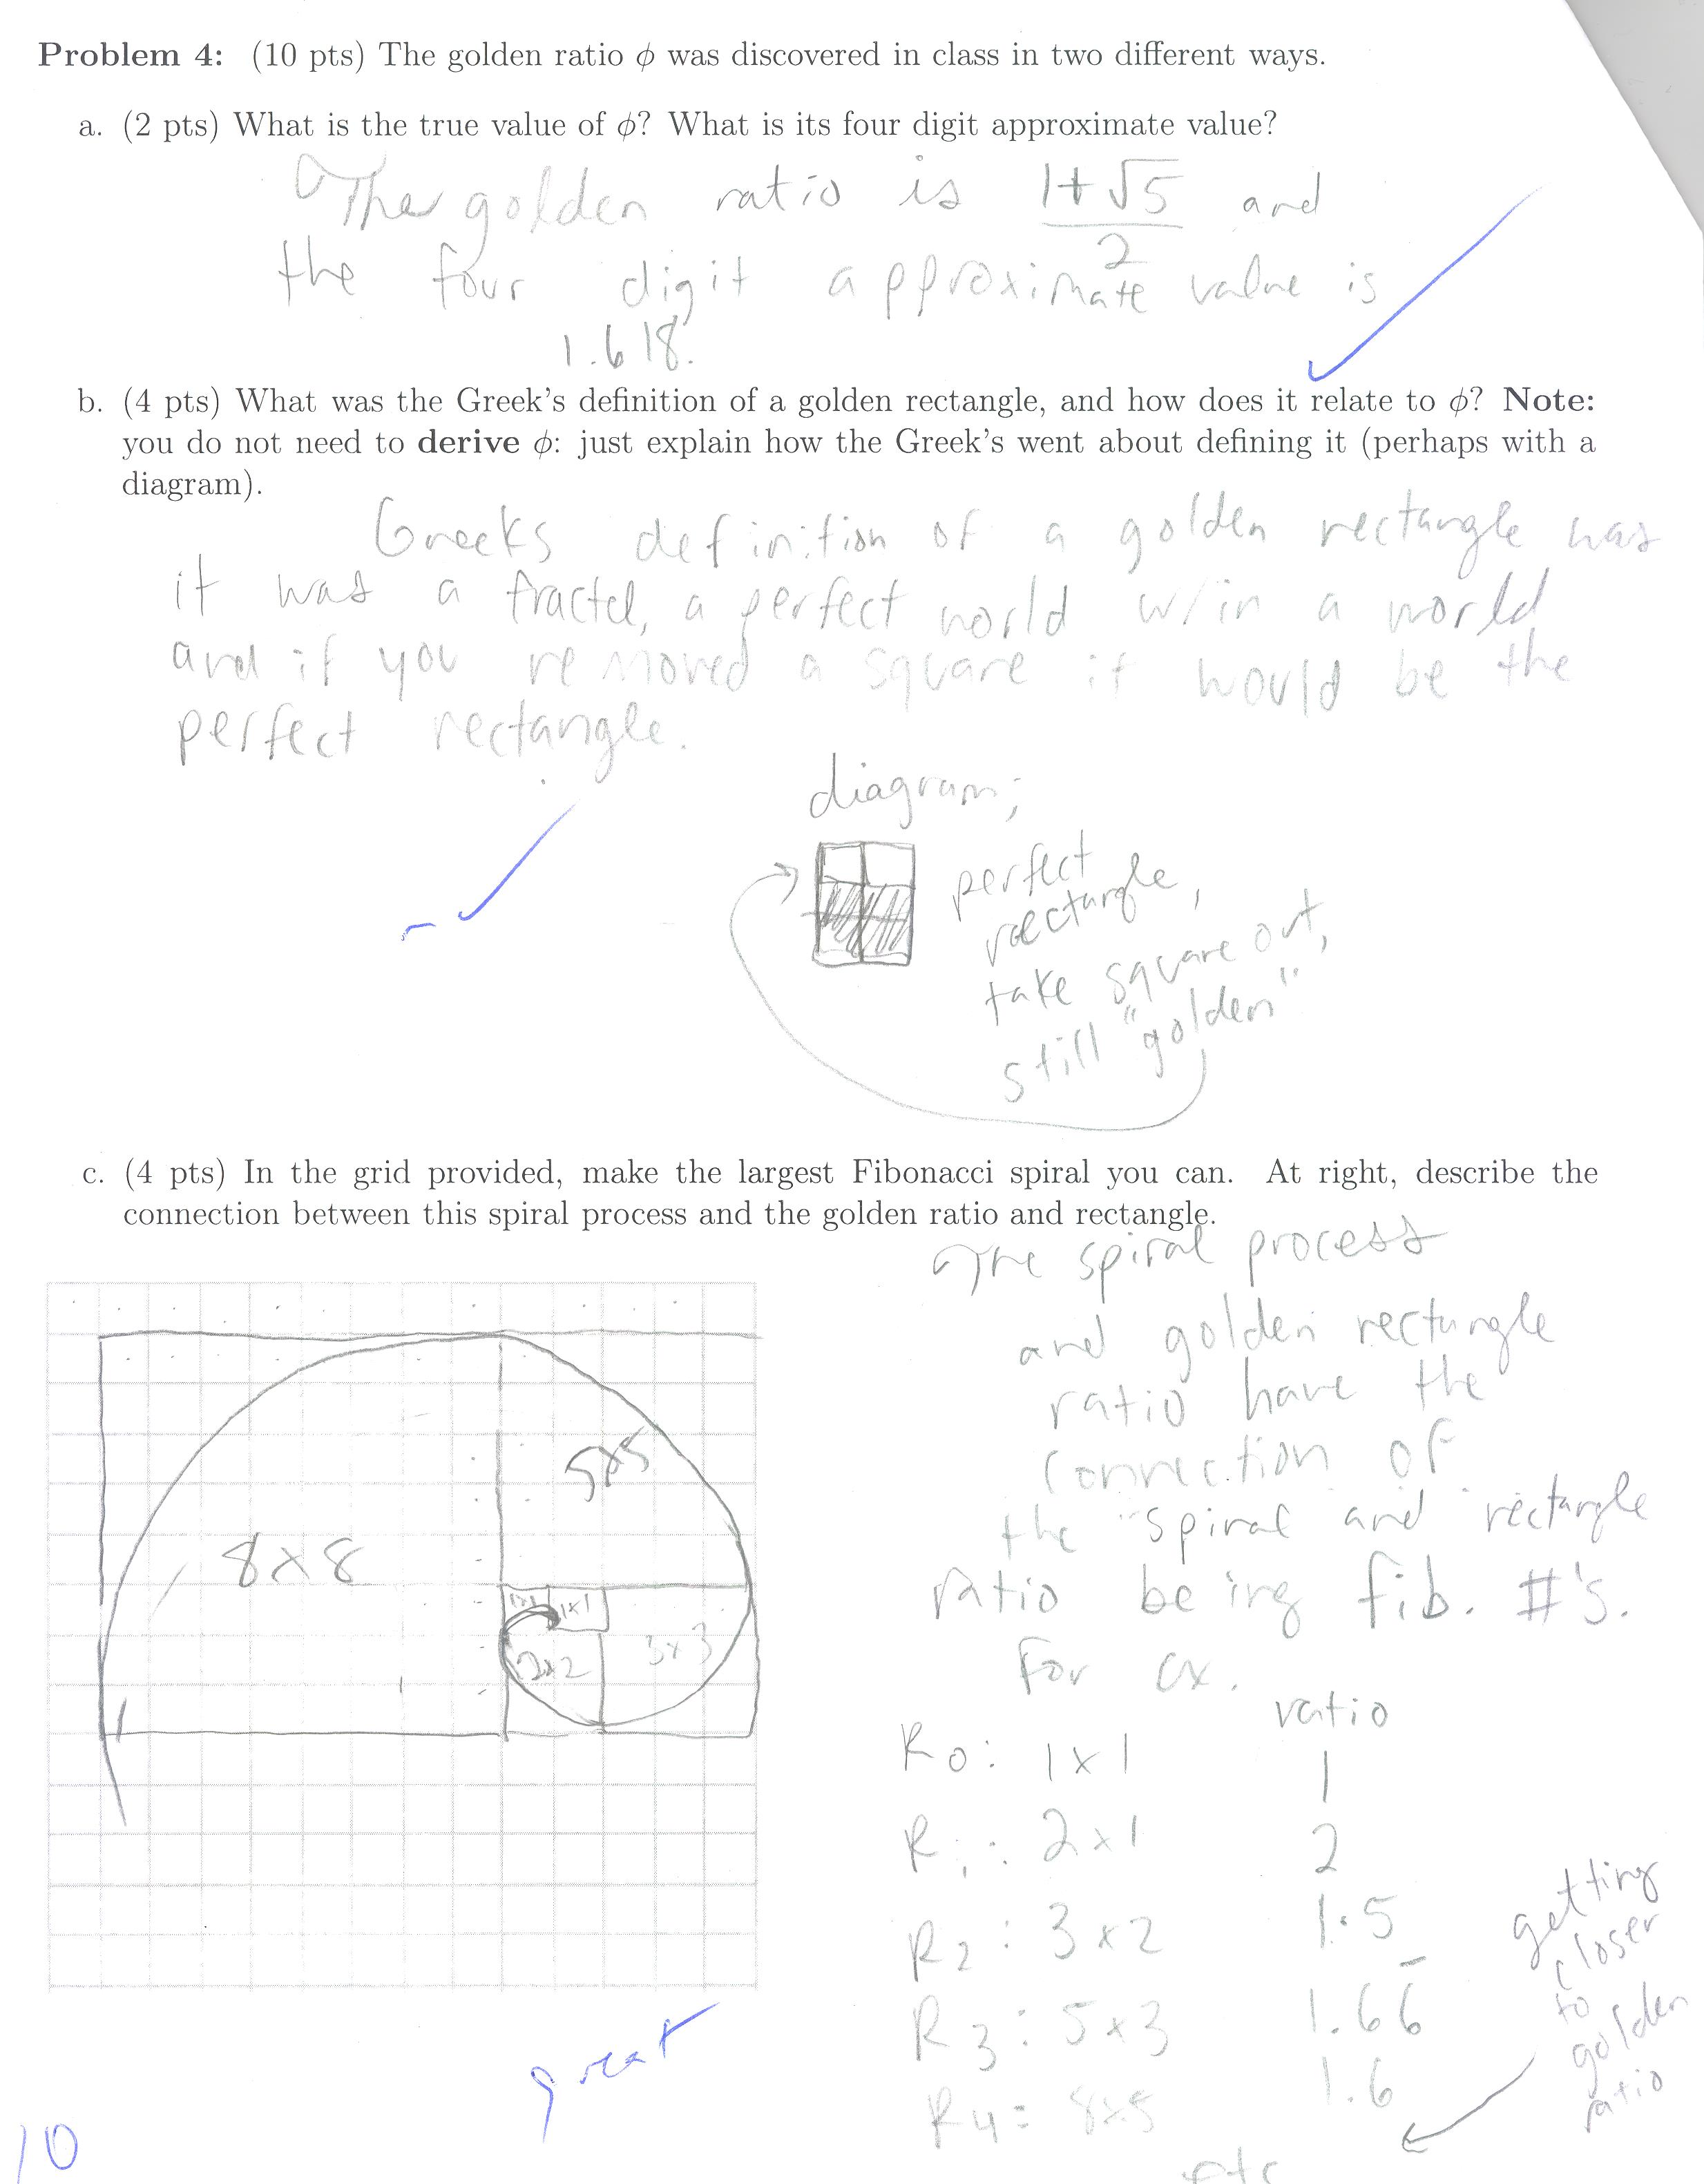 Problem 4: (10 pts) The golden ratio ϕ was discovered in class in two different ways.
a. (2 pts) What is the true value of ϕ? What is its four digit approximate value?
The golden ratio is (1+√5)/2 and
the four digit approximate value is
1.618.
b. (4 pts) What was the Greek's definition of a golden rectangle, and how does it relate to ϕ? Note:
you do not need to derive ϕ: just explain how the Greek's went about defining it (perhaps with a
diagram).
Greeks definition of a golden rectangle was
it was a fractel, a perfect world w/in a world
and if you removed a square it would be the
perfect rectangle.
diagram;
perfect
rectangle,
take square out,
still "golden"
c. (4 pts) In the grid provided, make the largest Fibonacci spiral you can. At right, describe the
connection between this spiral process and the golden ratio and rectangle.
The spiral process
and golden rectangle
ratio have the
connection of
the spiral and rectangle
ratio being fib. #'s.
For ex.
ratio
R0: 1x1 1
R1: 2x1 2
R2: 3x2 1.5
R3: 5x3 1.66̅
R4= 8x5 1.6
etc
getting
closer
to
golden
ratio
5x5
8x8
1x1 1x1
2x2
3x3
great
10